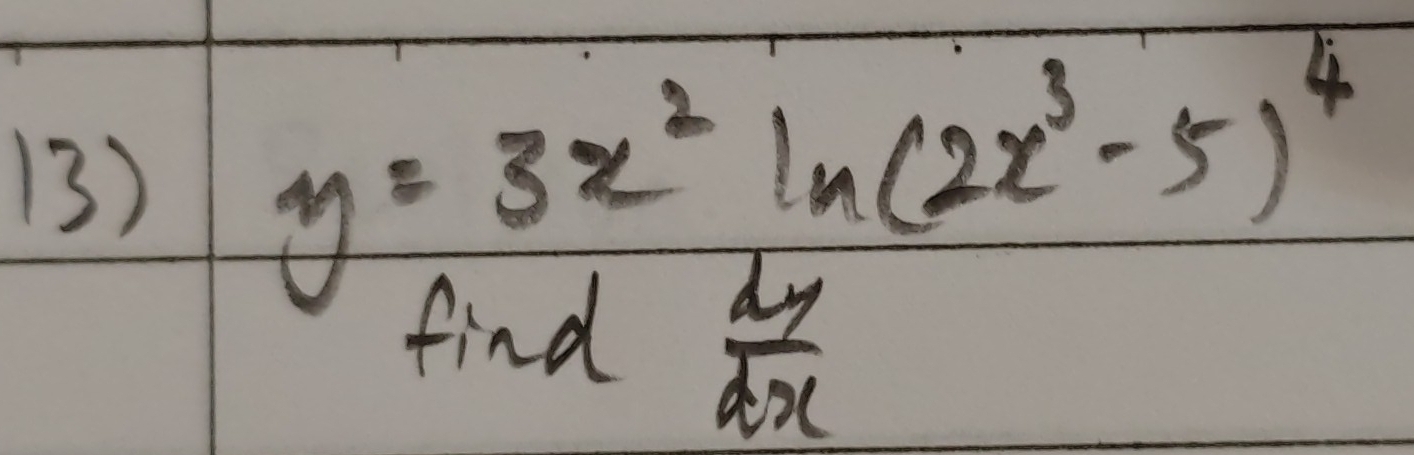 13) y = 3x² ln(2x³ - 5)⁴
find dy/dx